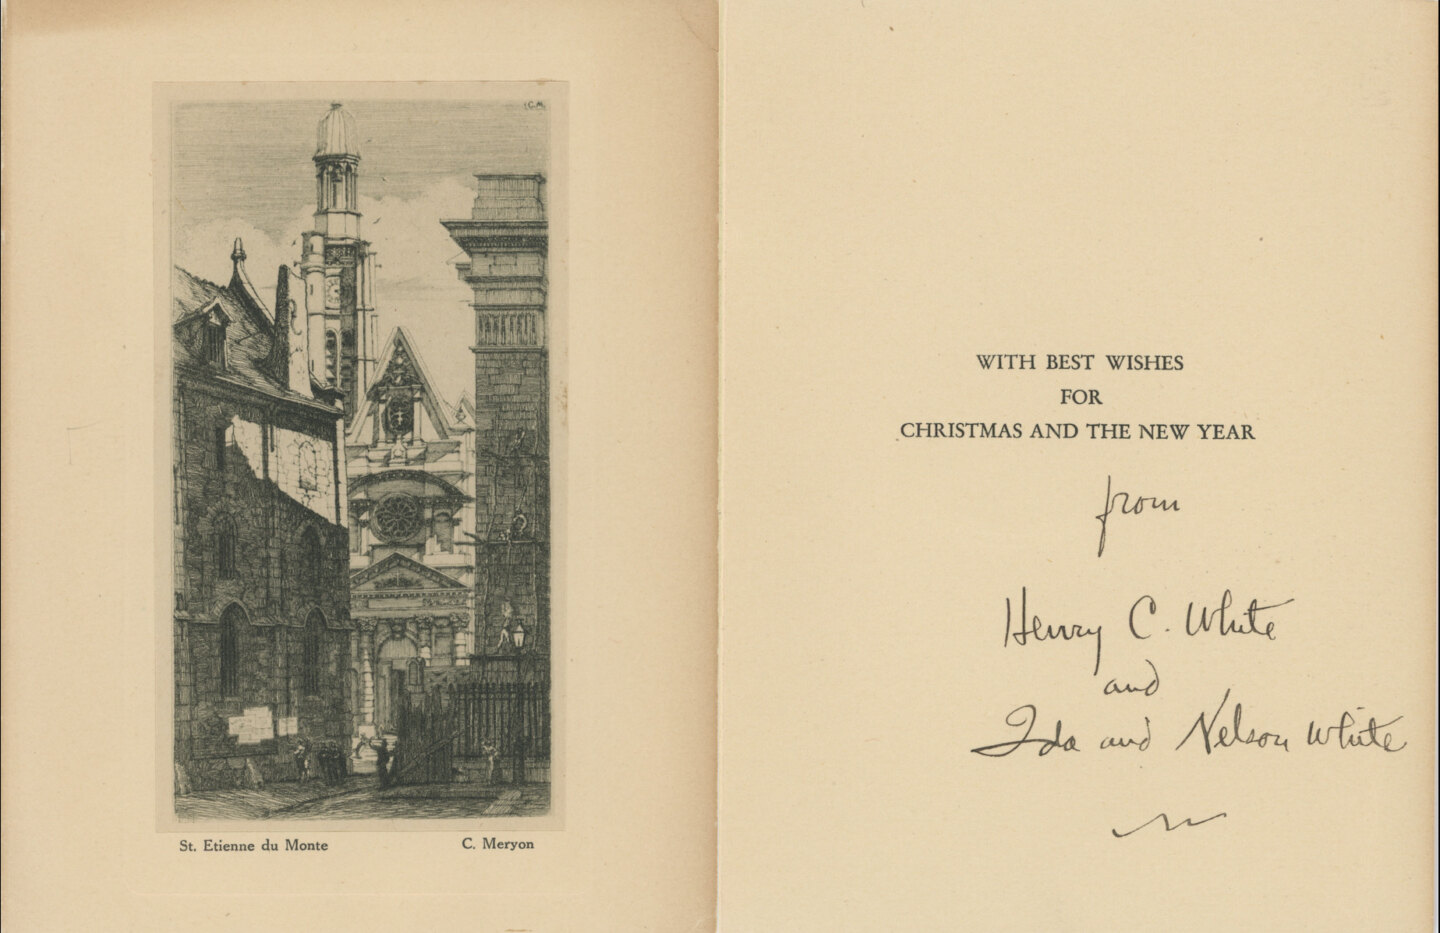 C.M.
St. Etienne du Monte
C. Meryon
WITH BEST WISHES
FOR
CHRISTMAS AND THE NEW YEAR
from
Henry C. White
and
Ida and Nelson White